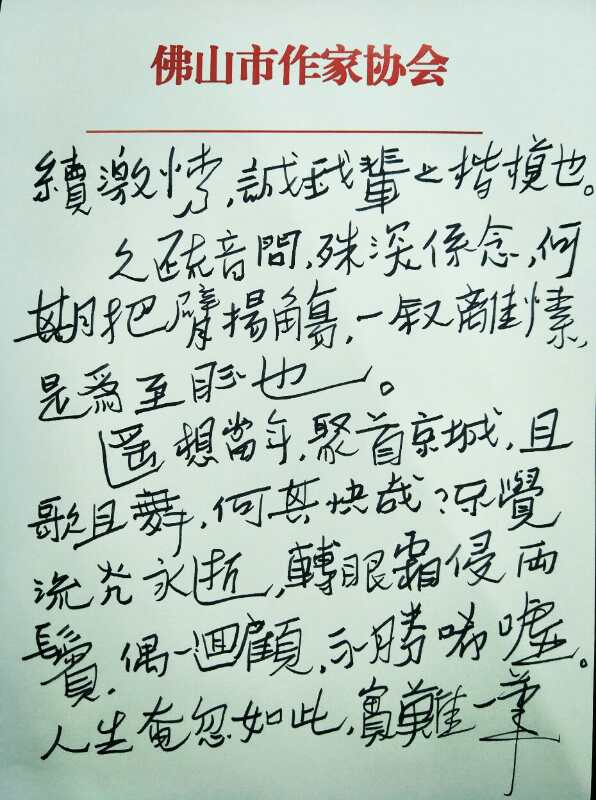 佛山市作家协会
續激情,誠我輩之楷模也。
久疏音問,殊深係念,何
期把臂揚觴,一叙離愫,
是爲至盼也。
遥想當年,聚首京城,且
歌且舞,何其快哉?不覺
流光永逝,轉眼霜侵兩
鬢,偶一迴顧,不勝唏嘘。
人生奄忽如此,實難一筆